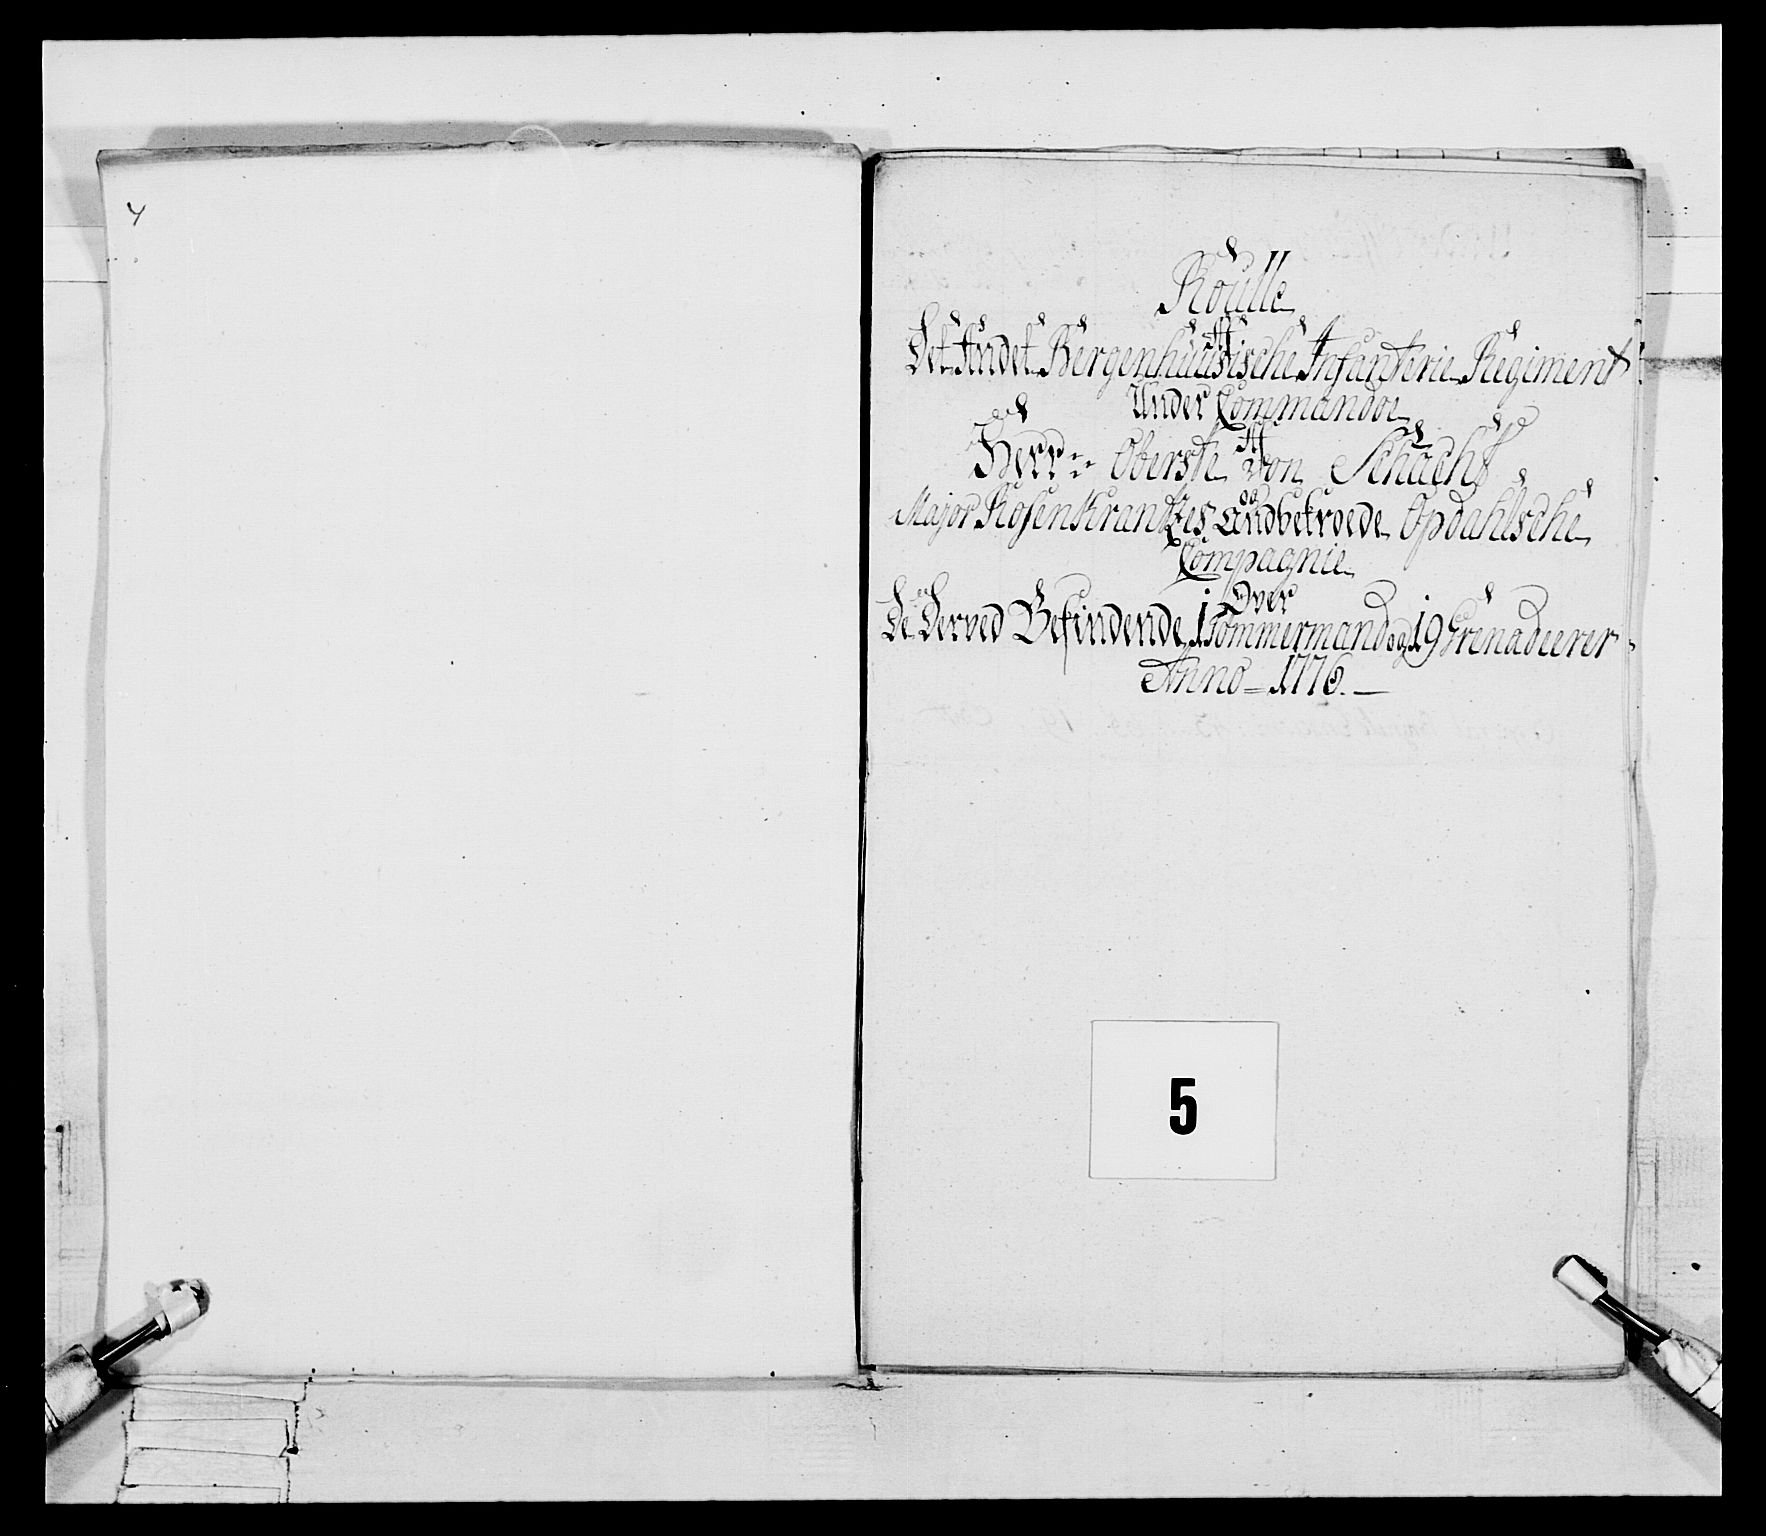 4
Roulle
Af
Det Andet Bergenhuusische Infanterie Regiment
Under Commandoe
Af
Herr Oberste von Schacht
og
Major Rosenkrantzes Andbetroede Opdahlsche
Compagnie
Over
De Derved Befindende 1 Tömmermand og 19 Grenadeerer
Anno 1776.
5